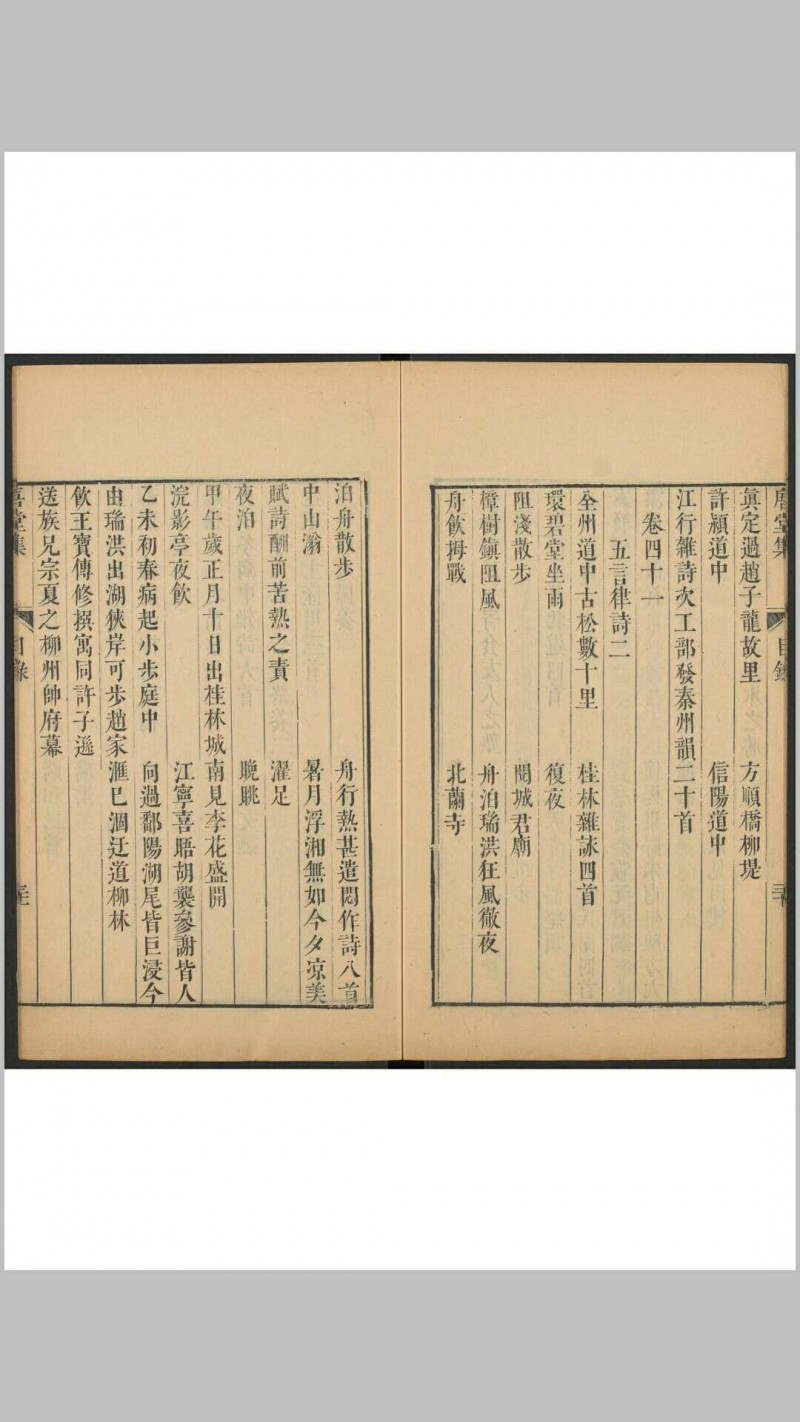 唐堂集 目錄
眞定過趙子龍故里 方順橋柳堤
許潁道中 信陽道中
江行雜詩次工部發秦州韻二十首
卷四十一
五言律詩二
全州道中古松數十里 桂林雜詠四首
環碧堂坐雨 復夜
阻淺散步 閱城君廟
樟樹鎮阻風 舟泊瑞洪狂風徹夜
舟飲拇戰 北蘭寺
泊舟散步 舟行熱甚遣悶作詩八首
中山滃 暑月浮湘無如今夕凉美
賦詩酬前苦熱之責 濯足
夜泊 晚眺
甲午歲正月十日出桂林城南見李花盛開
浣影亭夜飲 江寧喜晤胡襲參謝皆人
乙未初春病起小步庭中 向過鄱陽湖尾皆巨浸今
由瑞洪出湖狹岸可步趙家滙已涸迂道柳林
飲王寶傳修撰寓同許子遜
送族兄宗夏之柳州帥府幕
唐堂集 目錄